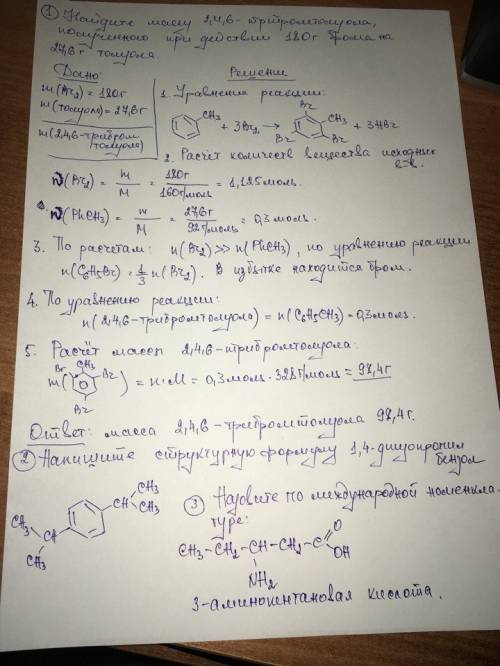 ① Найдите массу 2,4,6-трибромтолуола,
полученного при действии 180г брома на
27,6г толуола.
Дано:
m(Br₂) = 180г
m(толуола) = 27,6г
m(2,4,6-трибром
толуола)
Решение
1. Уравнение реакции:
CH₃ + 3Br₂ → Br CH₃ Br Br + 3HBr
2. Расчёт количеств вещества исходных
в-в.
ν(Br₂) = m/M = 180г/160г/моль = 1,125моль.
ν(PhCH₃) = m/M = 27,6г/92г/моль = 0,3моль.
3. По расчётам: n(Br₂) >> n(PhCH₃), по уравнению реакции
n(C₆H₅Br) = 1/3 n(Br₂). В избытке находится бром.
4. По уравнению реакции:
n(2,4,6-трибромтолуола) = n(C₆H₅CH₃) = 0,3моль.
5. Расчёт массы 2,4,6-трибромтолуола:
m(Br CH₃ Br Br) = n·M = 0,3моль · 328г/моль = 98,4г.
Ответ: масса 2,4,6-трибромтолуола 98,4г.
② Напишите структурную формулу 1,4-диизопропил
бензол
CH₃ CH CH₃ CH CH₃ CH₃
③ Назовите по международной номенкла-
туре:
CH₃-CH₂-CH-CH₂-C O OH
NH₂
3-аминопентановая кислота.